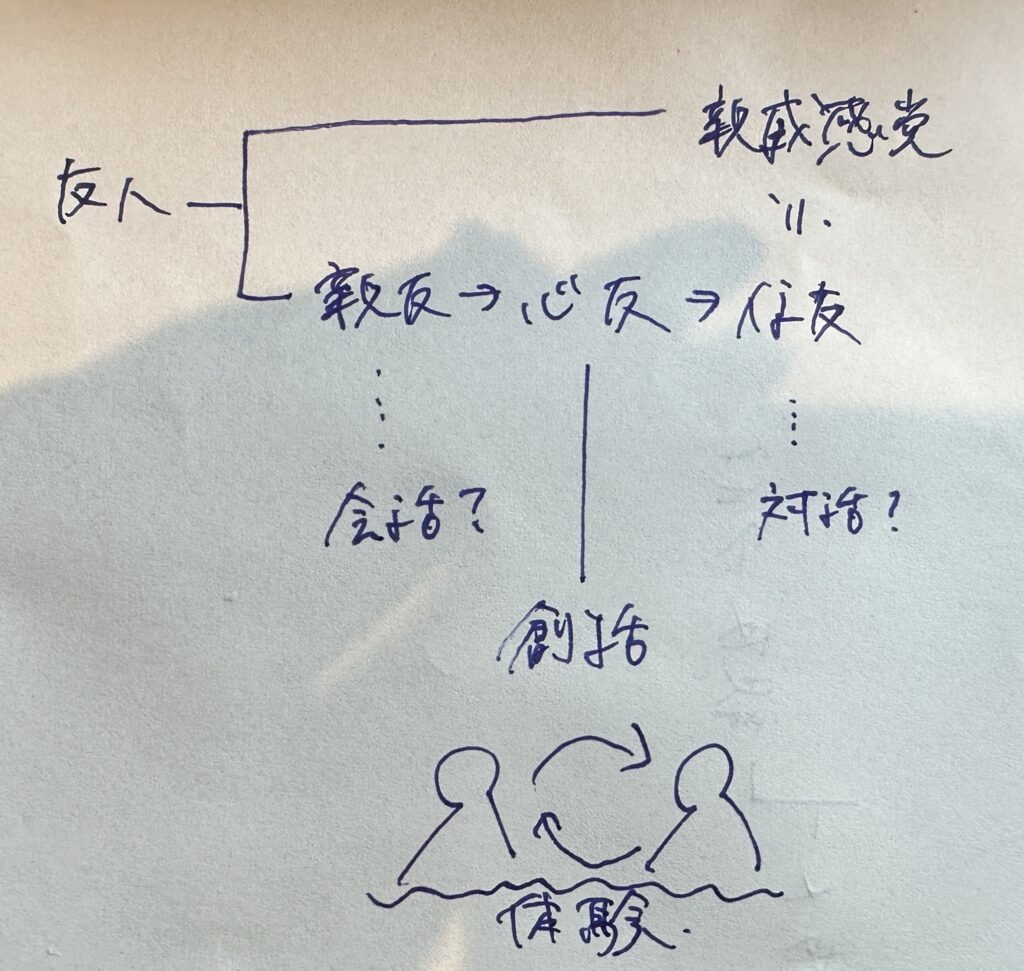 親戚感覚
友人
≒
親友→心友→信友
会話? 対話?
創話
体験.